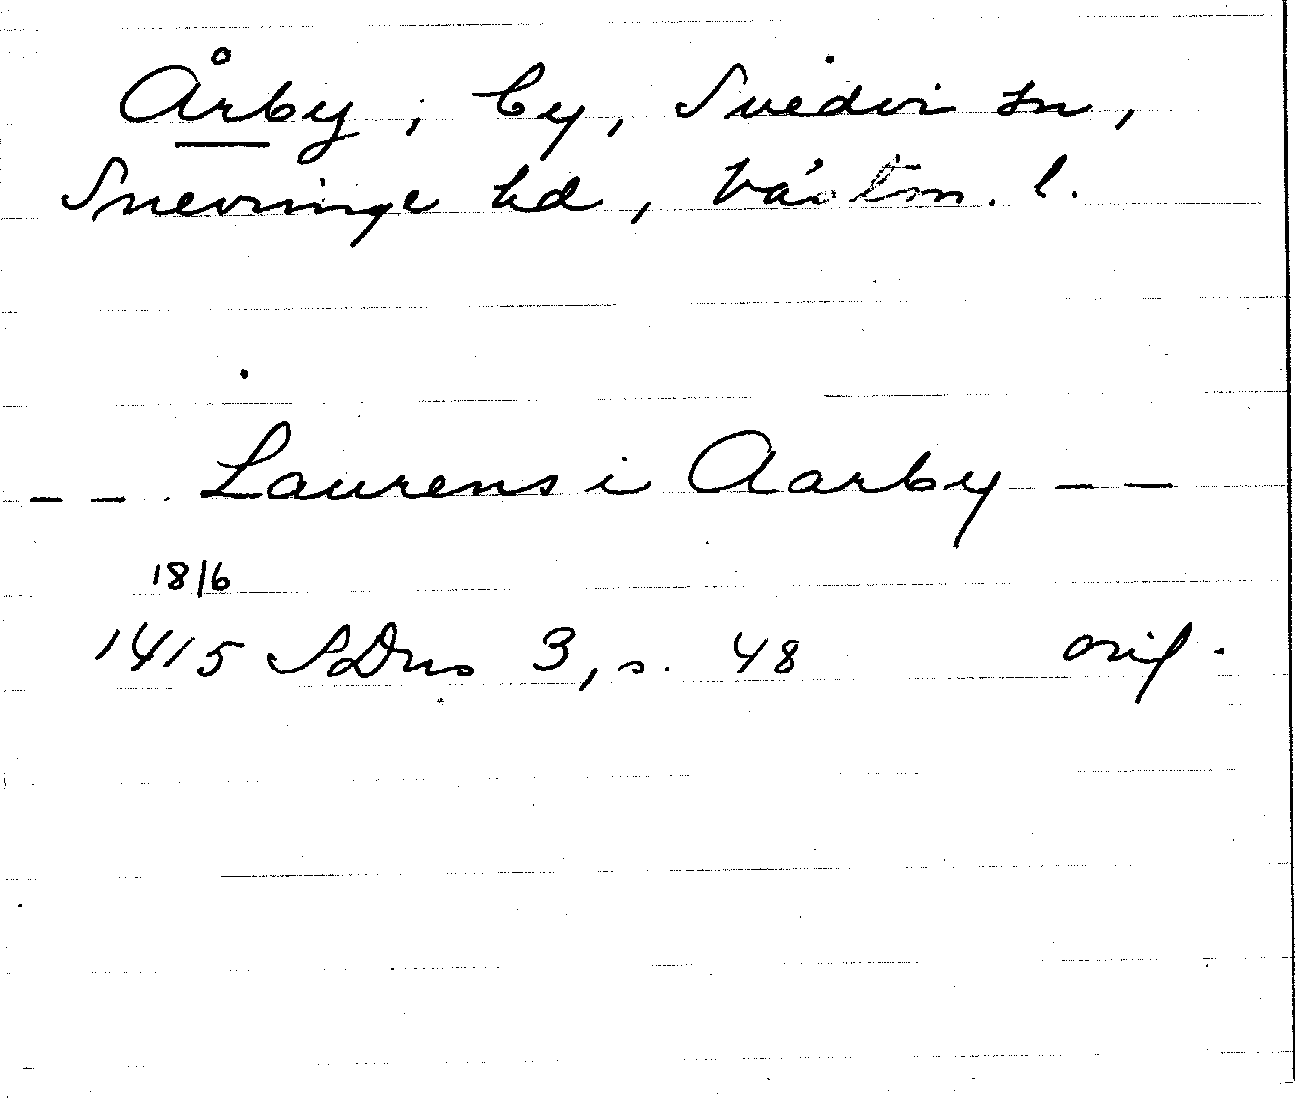 Årby, by, Svedvi sn,
Snevringe hd, Västm. l.
-- Laurens i Aarby --
18/6
1415 SDns 3, s. 48 orig.